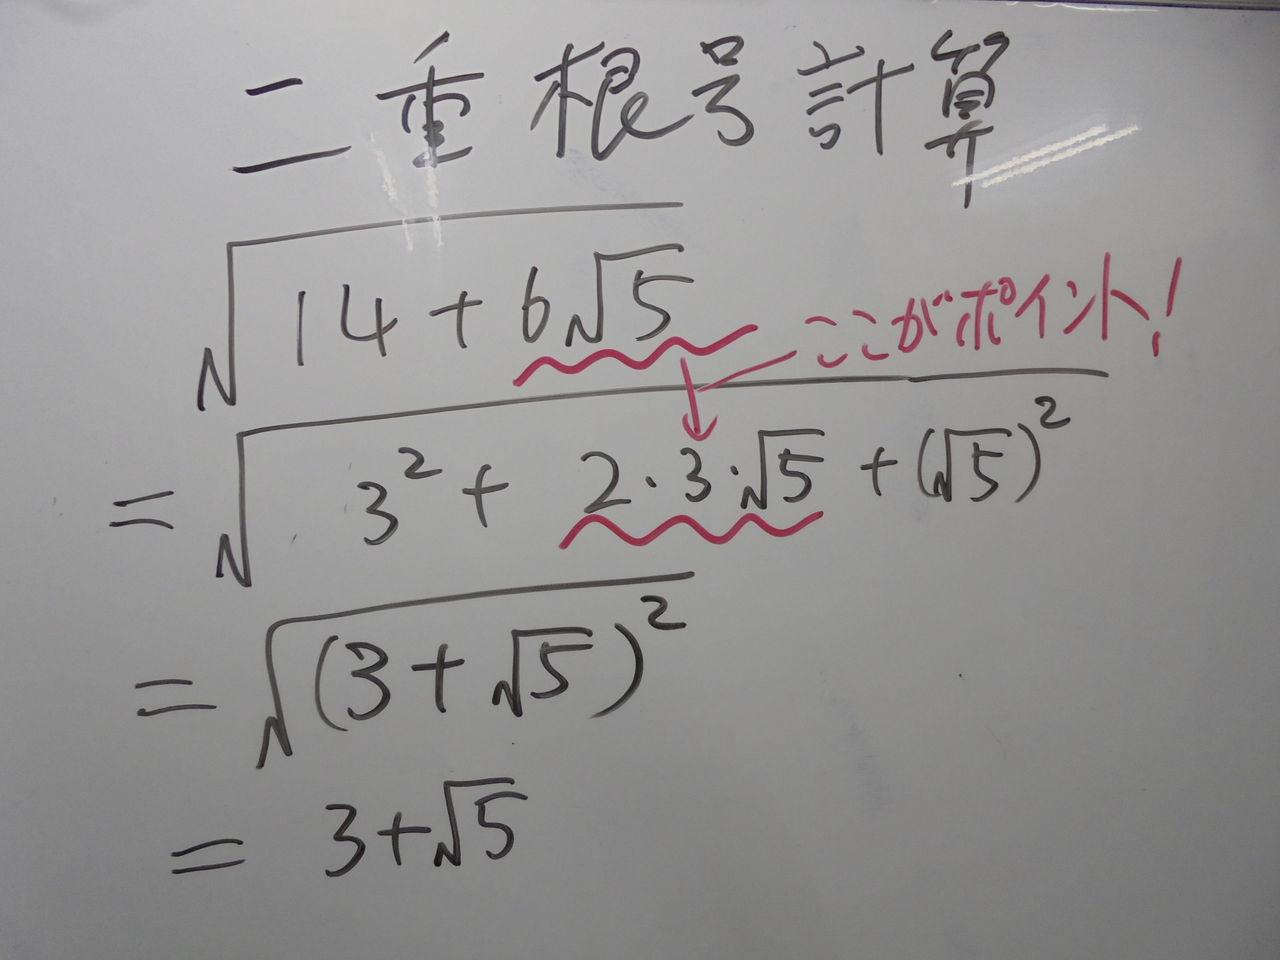 二重根号計算
√(14+6√5)
ここがポイント!
=√(3²+2·3·√5+(√5)²)
=√((3+√5)²)
=3+√5